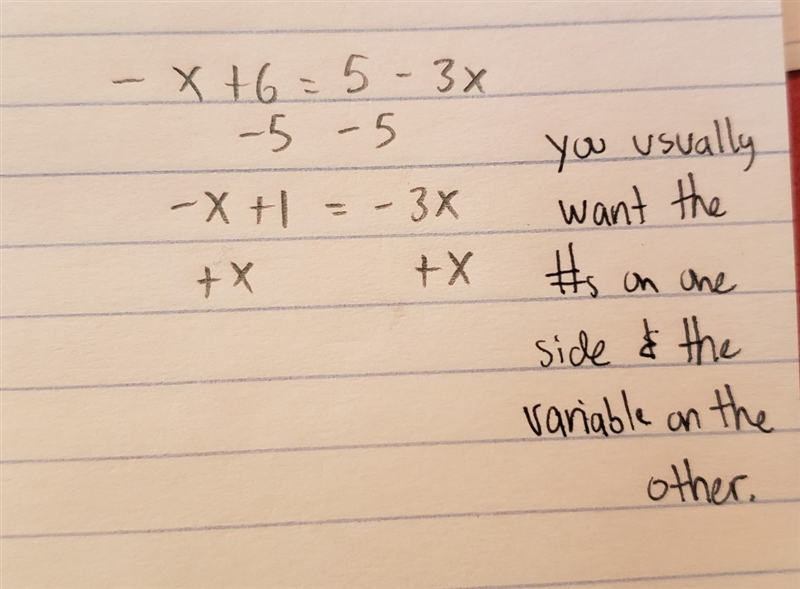 - x + 6 = 5 - 3x
-5 -5
-x + 1 = - 3x
+x +x
you usually
want the
#s on one
side & the
variable on the
other.